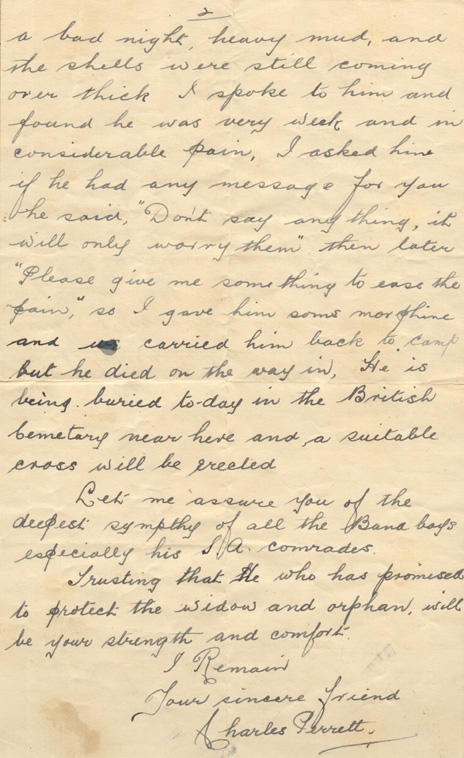 2
a bad night, heavy mud, and
the shells were still coming
over thick I spoke to him and
found he was very week and in
considerable pain, I asked him
if he had any message for you
he said, "Don't say anything, it
will only worry them" then later
"Please give me something to ease the
pain," so I gave him some morphine
and we carried him back to camp
but he died on the way in, He is
being buried to-day in the British
Cemetary near here and a suitable
cross will be erected
Let me assure you of the
deepest sympthy of all the Band boys
especially his S.A. comrades.
Trusting that He who has promised
to protect the widow and orphan, will
be your strength and comfort.
I Remain
Your sincere friend
Charles Perrett.